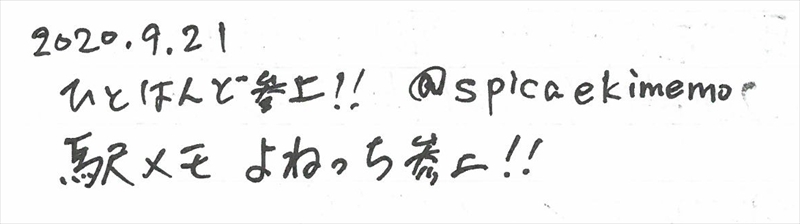 2020.9.21
ひとはんど参上!! @spicaekimemo
駅メモ よねっち参上!!